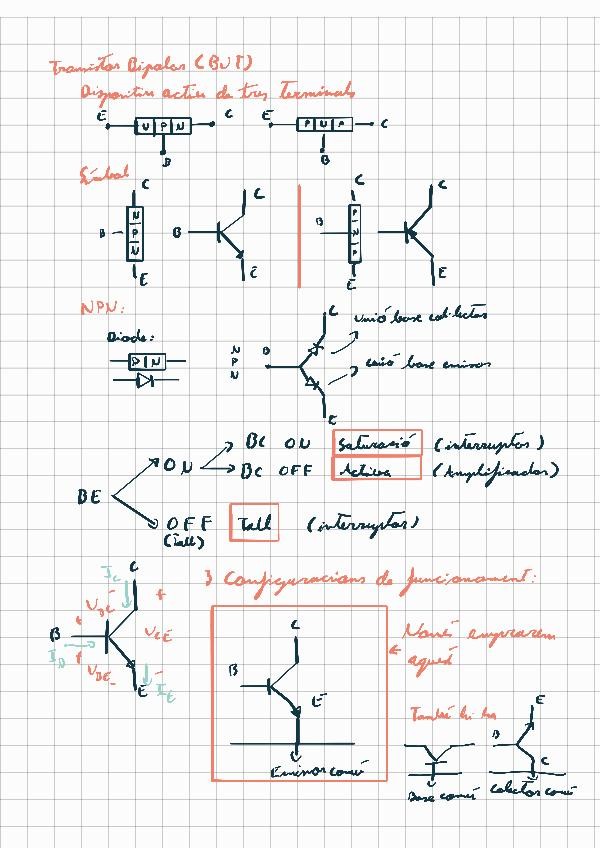 Transistor Bipolar (BJT)
Dispositiu actiu de tres terminals
E N P N C
B
E P N P C
B
Símbol
C
N
P
N
B
E
C
B
E
C
P
N
P
B
E
C
E
NPN:
Diode:
P N
N
P
N
B
C
E
unió base col·lector
unió base emissor
BE
ON
BC ON Saturació (interruptor)
BC OFF Activa (Amplificador)
OFF Tall (interruptor)
(Tall)
3 Configuracions de funcionament:
C
I_C
+
V_BC -
+
B
I_B
+
V_BE -
V_CE
-
E
I_E
C
B
E
Emissor comú
Només emprarem
aquest
També hi ha
Base comú
E
B
C
Colector comú